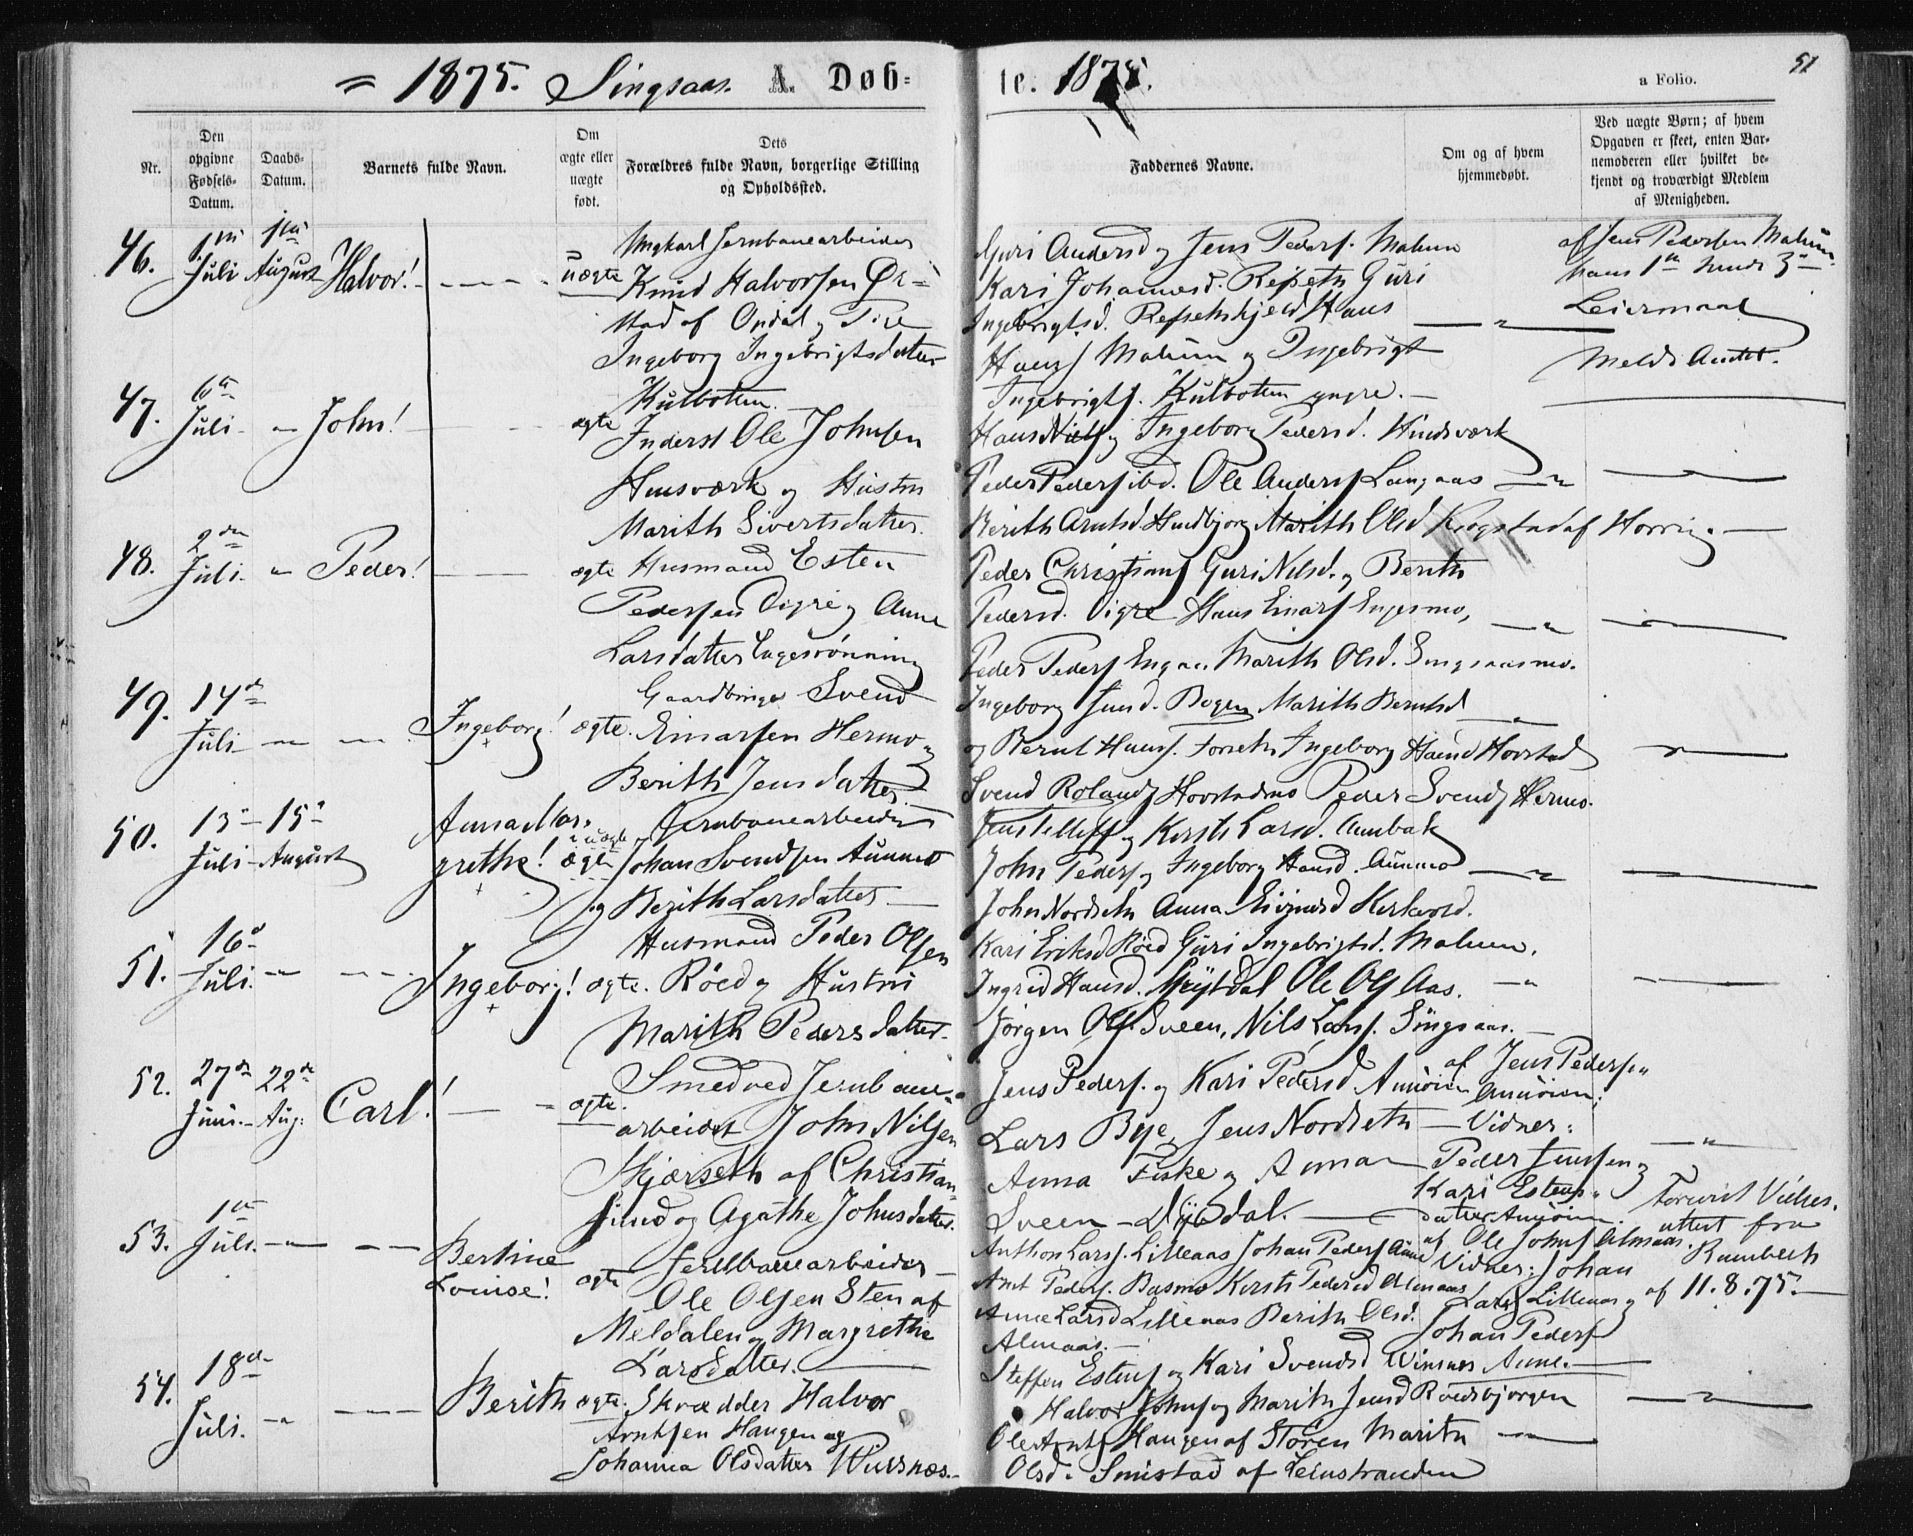 = 1875. Singsaas. A. Døb=
te. 1875.
a Folio.
51
Nr.
Den opgivne Fødsels-Datum.
Daabs-Datum.
Barnets fulde Navn.
Om ægte eller uægte født.
Dets Forældres fulde Navn, borgerlige Stilling og Opholdssted.
Faddernes Navne.
Om og af hvem hjemmedøbt.
Ved uægte Børn; af hvem Opgaven er skeet, enten Barnemoderen eller hvilket bekjendt og troværdigt Medlem af Menigheden.
46. 1ste Juli 1ste August Halvor! uægte
Ungkarl Jernbanearbeider
Knud Halvorsen
af Opdal og Pige
Ingeborg Ingebrigtsdatter
Kulbotten.
Guri Andersd og Jens Peders. Malum
Kari Johannesd. Refseth Guri
Ingebrigtsd. Refsethskjeld Hans
Hans Malum og Ingebrigt
Ingebrigts. Kulbotten yngre.
af Jens Pedersen Malum
hans 1ste hendes 3die
Leiermaal
47. 6te Juli John! ægte
Inderst Ole Johnsen
Husværk og Hustru
Marith Sivertsdatter
Hans Nils og Ingeborg Pedersd. Hindsværk
Peder Peders ibd. Ole Anders Langaas
Berith Arntsd Marith Olsd Krogstad af Horrig.
48. 2den Juli Peder! ægte
Husmand Esten
Pedersen Digre og Anne
Larsdatter Engesrønning
Peder Christians Guri Nilsd. og Berith
Pedersd. Digre Hans Einars Engesmo,
Peder Peders Marith Olsd. Singsaasmo.
49. 14de Juli Ingeborg! ægte.
Gaardbruger Svend
Einarsen Hermo og
Berith Jensdatter
Ingeborg Jensd. Bogen Marith Berntsd
og Bernt Hans. Forseth Ingeborg Hansd Hovstad
Svend Rolands Hovstadmo Peder Svends Hermo.
50. 13de Juli 15de August Anna Margrethe! uægte ægte
Jernbanearbeider
Johan Svendsen Aunmo
og Berith Larsdatter
Jens Tellefs og Kirsti Larsd. Aunbak
John Peders og Ingeborg Hansd. Aunmo
John Nordseth Anna Kirkvold.
51. 16de Juli Ingeborg! ægte.
Husmand Peder Olsen
Røed og Hustru
Marith Pedersdatter
Kari Eriksd Røed Guri Ingebrigtsd. Malum.
Ingrid Hansd. Ole Ols Aas.
Jørgen Ols. Sveen, Nils Lars. Singsaas.
52. 27de Juni 22de Aug: Carl! ægte.
Smed ved Jernbane-
arbeidet John Nilsen
Skjærseth af Christian-
sund og Agathe Johnsdatter.
Jens Peders. og Kari Pedersd Aunøien
Lars Bye, Jens Nordseth
Anna Fiske og Anna
Sveen
af Jens Pedersen
Aunøien;
Vidner:
Peder Jenssen og
Kari Estens-
datter Aunøien.
53. 1ste Juli Bertine Louise! ægte
Jernbanearbeider
Ole Olsen Sten af
Meldalen og Margrethe
Larsdatter.
Anthon Lars. Lilleaas Johan Peders Aune
Arnt Peders. Busmo Kirsti Pedersd Almaas
Anne Larsd Lilleaas Berith Olsd.
Almaas.
af Ole Johns Almaas.
Vidner: Johan
Lars Lilleaas og
Johan Peders
Forevist Vielses-
attest fra
af 11.8.75.
54. 18de Juli Berith ægte.
Skrædder Halvor
Arntsen Haugen og
Johanna Olsdatter Winsnæs.
Steffen Estens og Kari Svendsd Winsnes Aune.
Halvor Johns og Marith Jensd Røedsbjørgen
Ole Arnts Haugen af Støren Marith
Olsd. Smistad af Leinstranden